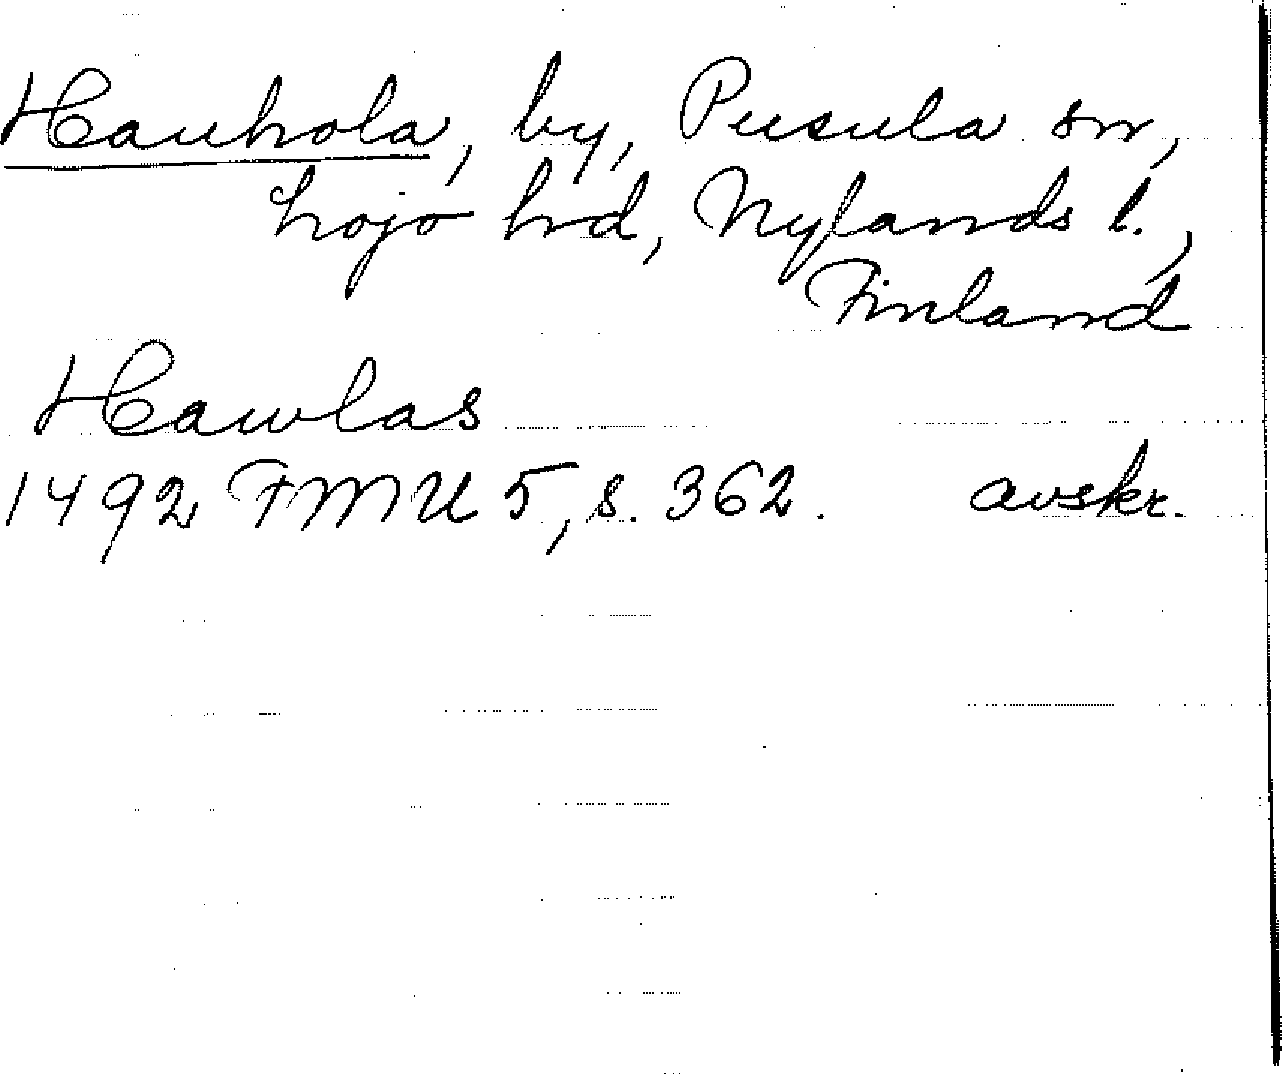 Hauhola, by, Pusula sn,
Lojo hd, Nylands l.,
Finland
Hawlas
1492 FMU 5, s. 362. avskr.